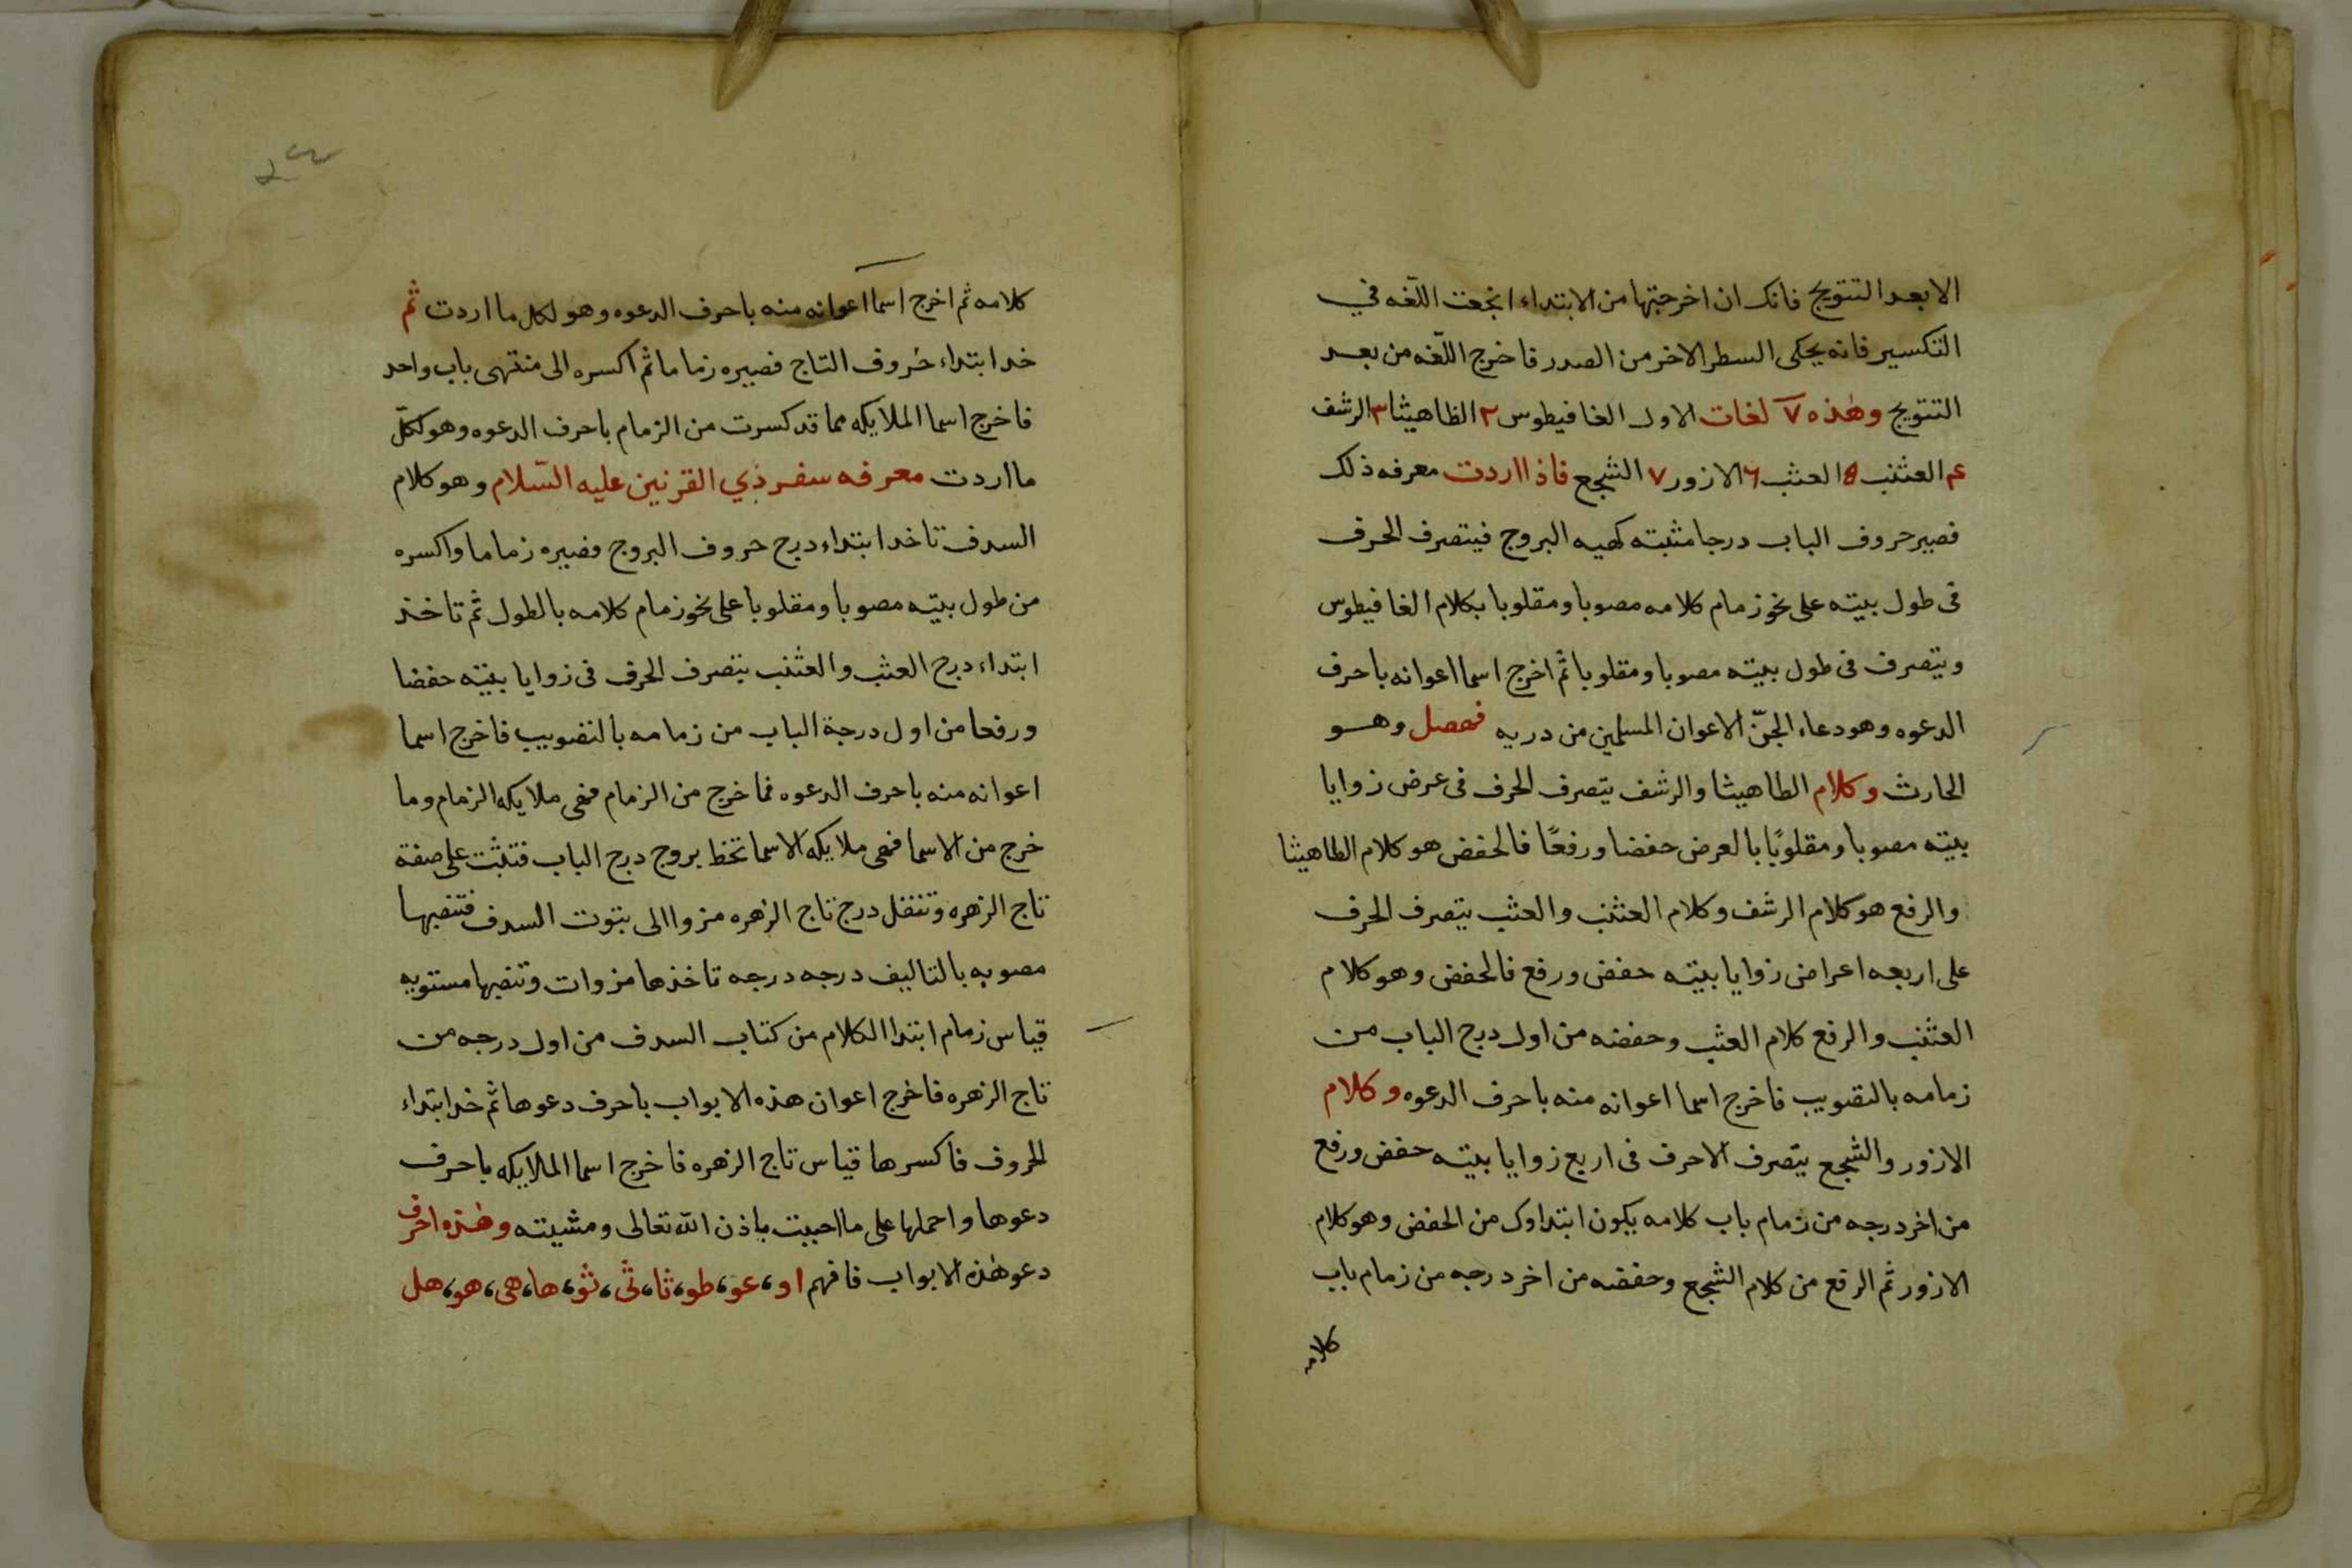 الابعد التتويج فانك ان اخرجتها من الابتداء انجعت اللّغه في
التكسير فانه يحكى السطر الاخر من الصدر فاخرج اللّغه من بعد
التتويج وهذه ٧ لغات الاول الغافيطوس ٢ الظاهيثا ٣ الرشف
عم العثنب 8 العثب ٦ الازور ٧ الشجع فاذا اردت معرفه ذلك
فصير حروف الباب درجا مثبته كهيه البروج فيتصرف الحرف
فى طول بيته على نحو زمام كلامه مصوبا ومقلوبا بكلام الغافيطوس
ويتصرف فى طول بيته مصوبا ومقلوبا ثم اخرج اسما اعوانه باحرف
الدعوه وهو دعاء الجنّ الاعوان المسلمين من دريه فهصل وهو
الحارث وكلام الطاهيثا والرشف يتصرف الحرف فى عرض زوايا
بيته مصوبا ومقلوبًا بالعرض حفضا ورفعًا فالحفض هو كلام الطاهيثا
والرفع هو كلام الرشف وكلام العثنب والعثب يتصرف الحرف
على اربعه اعراض زوايا بيته حفض ورفع فالحفض وهو كلام
العثنب والرفع كلام العثب وحفضه من اول درج الباب من
زمامه بالتصويب فاخرج اسما اعوانه منه باحرف الدعوه وكلام
الازور والشجع يتصرف الاحرف فى اربع زوايا بيته حفض ورفع
من اخر درجه من زمام باب كلامه يكون ابتداوك من الحفض وهو كلام
الازور ثم الرفع من كلام الشجع وحفضه من اخر درجه من زمام باب
كلامه
كلامه ثم اخرج اسما اعوانه منه باحرف الدعوه وهو لكل ما اردت ثم
خد ابتداء حروف التاج فصيره زماما ثم اكسره الى منتهى باب واحد
فاخرج اسما الملايكه مما قد كسرت من الزمام باحرف الدعوه وهو لكلّ
ما اردت معرفه سفر ذي القرنين عليه السّلام وهو كلام
السدف تاخد ابتداء درج حروف البروج فصيره زماما واكسره
من طول بيته مصوبا ومقلوبا على نحو زمام كلامه بالطول ثم تاخذ
ابتداء درج العثب والعثنب يتصرف الحرف فى زوايا بيته حفضا
ورفعا من اول درجة الباب من زمامه بالتصويب فاخرج اسما
اعوانه منه باحرف الدعوه فما خرج من الزمام فهى ملايكه الزمام وما
خرج من الاسما فهى ملايكه الاسما تخط بروج درج الباب فتثبت على صفة
تاج الزهره وتنقل درج تاج الزهره مزوا الى بتوت السدف فتنصبها
مصوبه بالتاليف درجه درجه تاخذها مزوات وتنصبها مستويه
قياس زمام ابتدا الكلام من كتاب السدف من اول درجه من
تاج الزهره فاخرج اعوان هذه الابواب باحرف دعوها ثم خد ابتداء
الحروف فاكسرها قياس تاج الزهره فاخرج اسما الملايكه باحرف
دعوها واحملها على ما احببت باذن الله تعالى ومشيته وهذه احرف
دعو هذه الابواب فافهم او، عو، طو، ثا، ثى، ثو، ها، هى، هو، هل